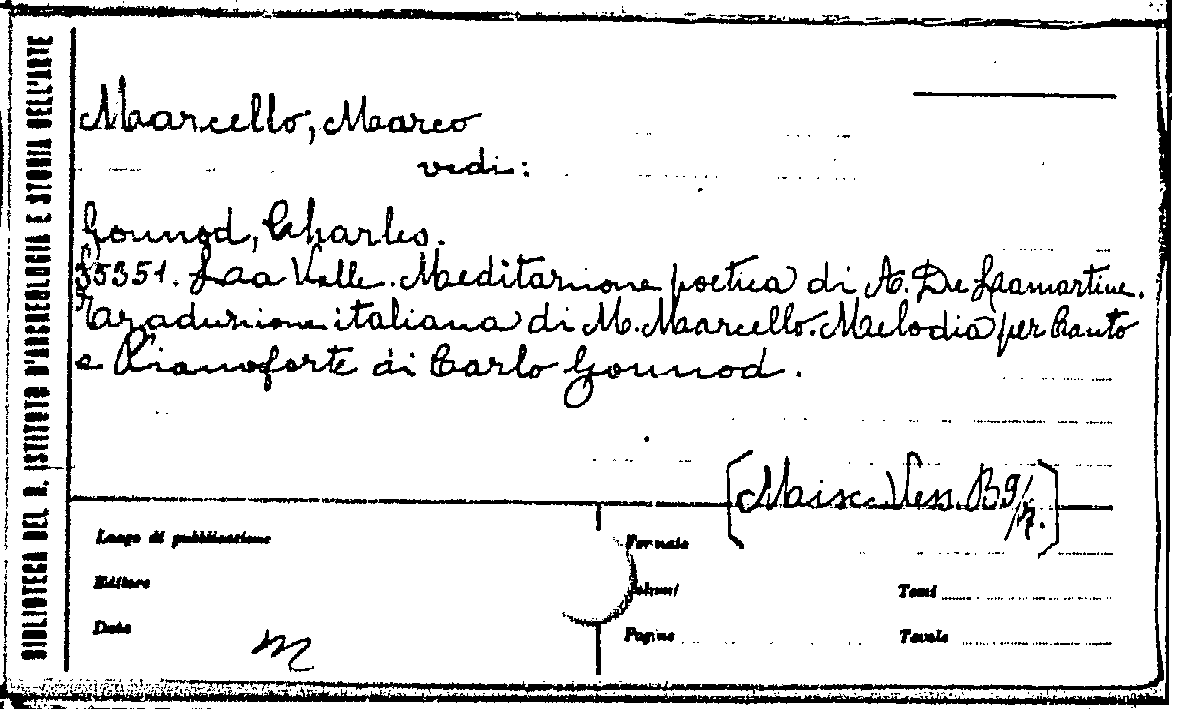 BIBLIOTECA DEL R. ISTITUTO D'ARCHEOLOGIA E STORIA DELL'ARTE
Marcello, Marco
vedi:
Gounod, Charles.
55351. La Valle. Meditazione poetica di A. De Lamartine.
Traduzione italiana di M. Marcello. Melodia per Canto
e Pianoforte di Carlo Gounod.
[Misc. Vess. B 9/7.]
Luogo di pubblicazione
Editore
Data
m
Formato
Volumi
Tomi
Pagine
Tavole